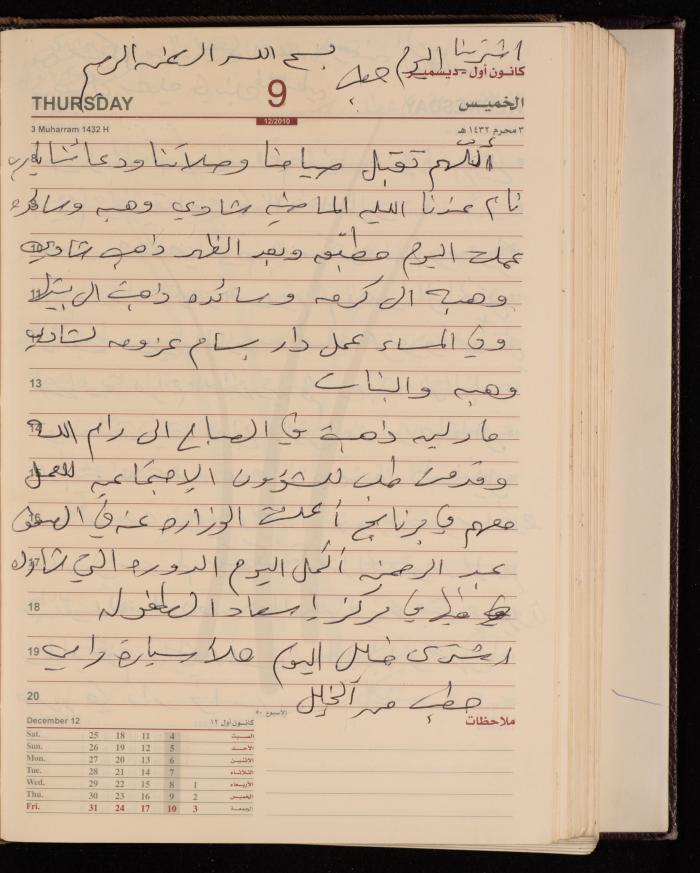 اشترينا اليوم
بسم الله الرحمن الرحيم
حطب
كانون أول - ديسمبر
THURSDAY
9
الخميس
12/2010
3 Muharram 1432 H
٣ محرم ١٤٣٢ هـ
اللهم تقبل صيامنا وصلاتنا ودعائنا يا رب
نام عندنا الليله الماضيه شادي وهبه وسائده
عملت اليوم مطبقه وبعد الظهر ذاهب شادي
وهبه الى كرمه وسائده ذاهبت الى بيتلا
وفي المساء عمل دار بسام عزومه لشادي
13
وهبه والبنات
ماركيه ذاهبت في الصباح الى رام الله
وقدمت طلب للشؤون الإجتماعيه للعمل
معهم في برنامج أعلنت الوزاره عنه في الصحف
عبد الرحمن أكمل اليوم الدوره التي شارك
18
في مركز إسعاد الطفوله
19
اشترى خليل اليوم سيارة رامي
20
حطب من الخليل
December 12
كانون أول ١٢
الأسبوع ٥٠
ملاحظات
Sat. 25 18 11 4 السبت
Sun. 26 19 12 5 الأحد
Mon. 27 20 13 6 الاثنين
Tue. 28 21 14 7 الثلاثاء
Wed. 29 22 15 8 1 الأربعاء
Thu. 30 23 16 9 2 الخميس
Fri. 31 24 17 10 3 الجمعة